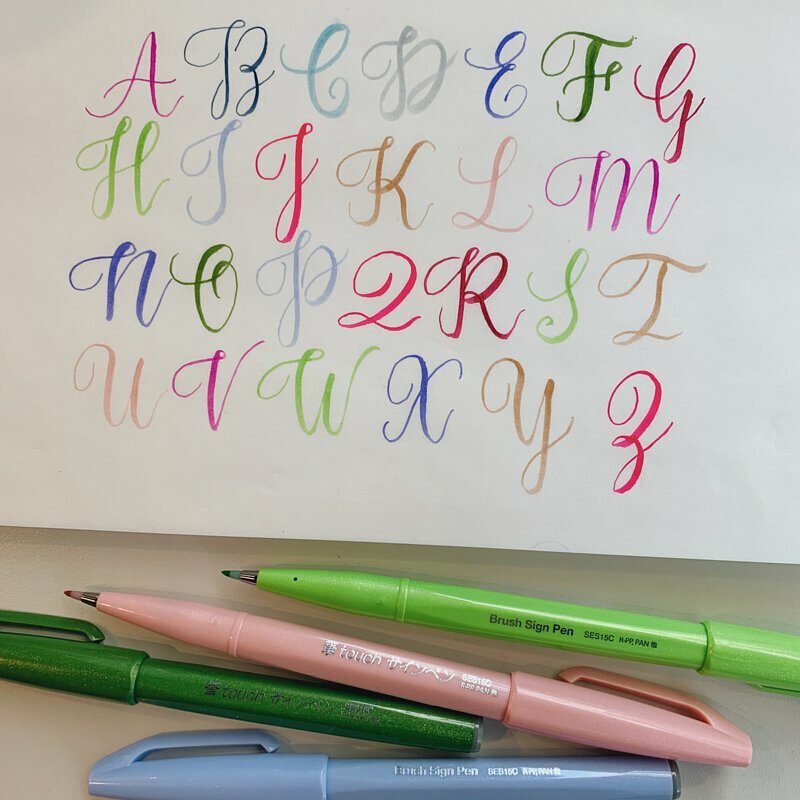 A B C D E F G
H I J K L M
N O P Q R S T
U V W X Y Z
Brush Sign Pen SES15C R-PP, PAN 他
筆touch サインペン SES15C R-PP, PAN 他
筆touch サインペン
Brush Sign Pen SES15C R-PP, PAN 他